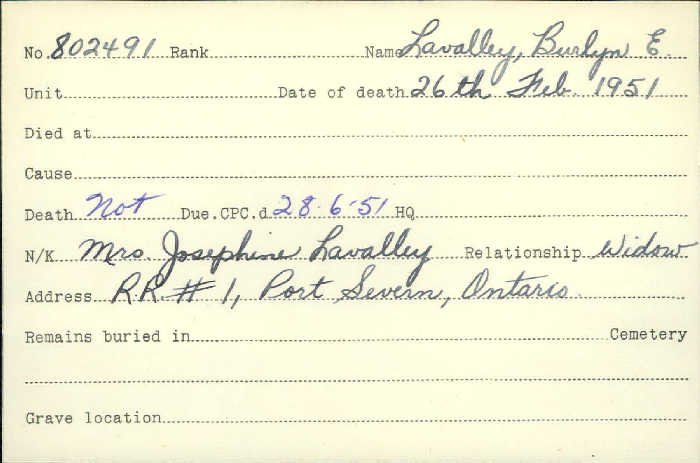 No. 802491 Rank Name Lavalley, Burlyn E.
Unit Date of death 26th Feb. 1951
Died at
Cause
Death Not Due. CPC.d 28-6-51 HQ
N/K Mrs. Josephine Lavalley Relationship Widow
Address R.R. # 1, Port Severn, Ontario.
Remains buried in Cemetery
Grave location